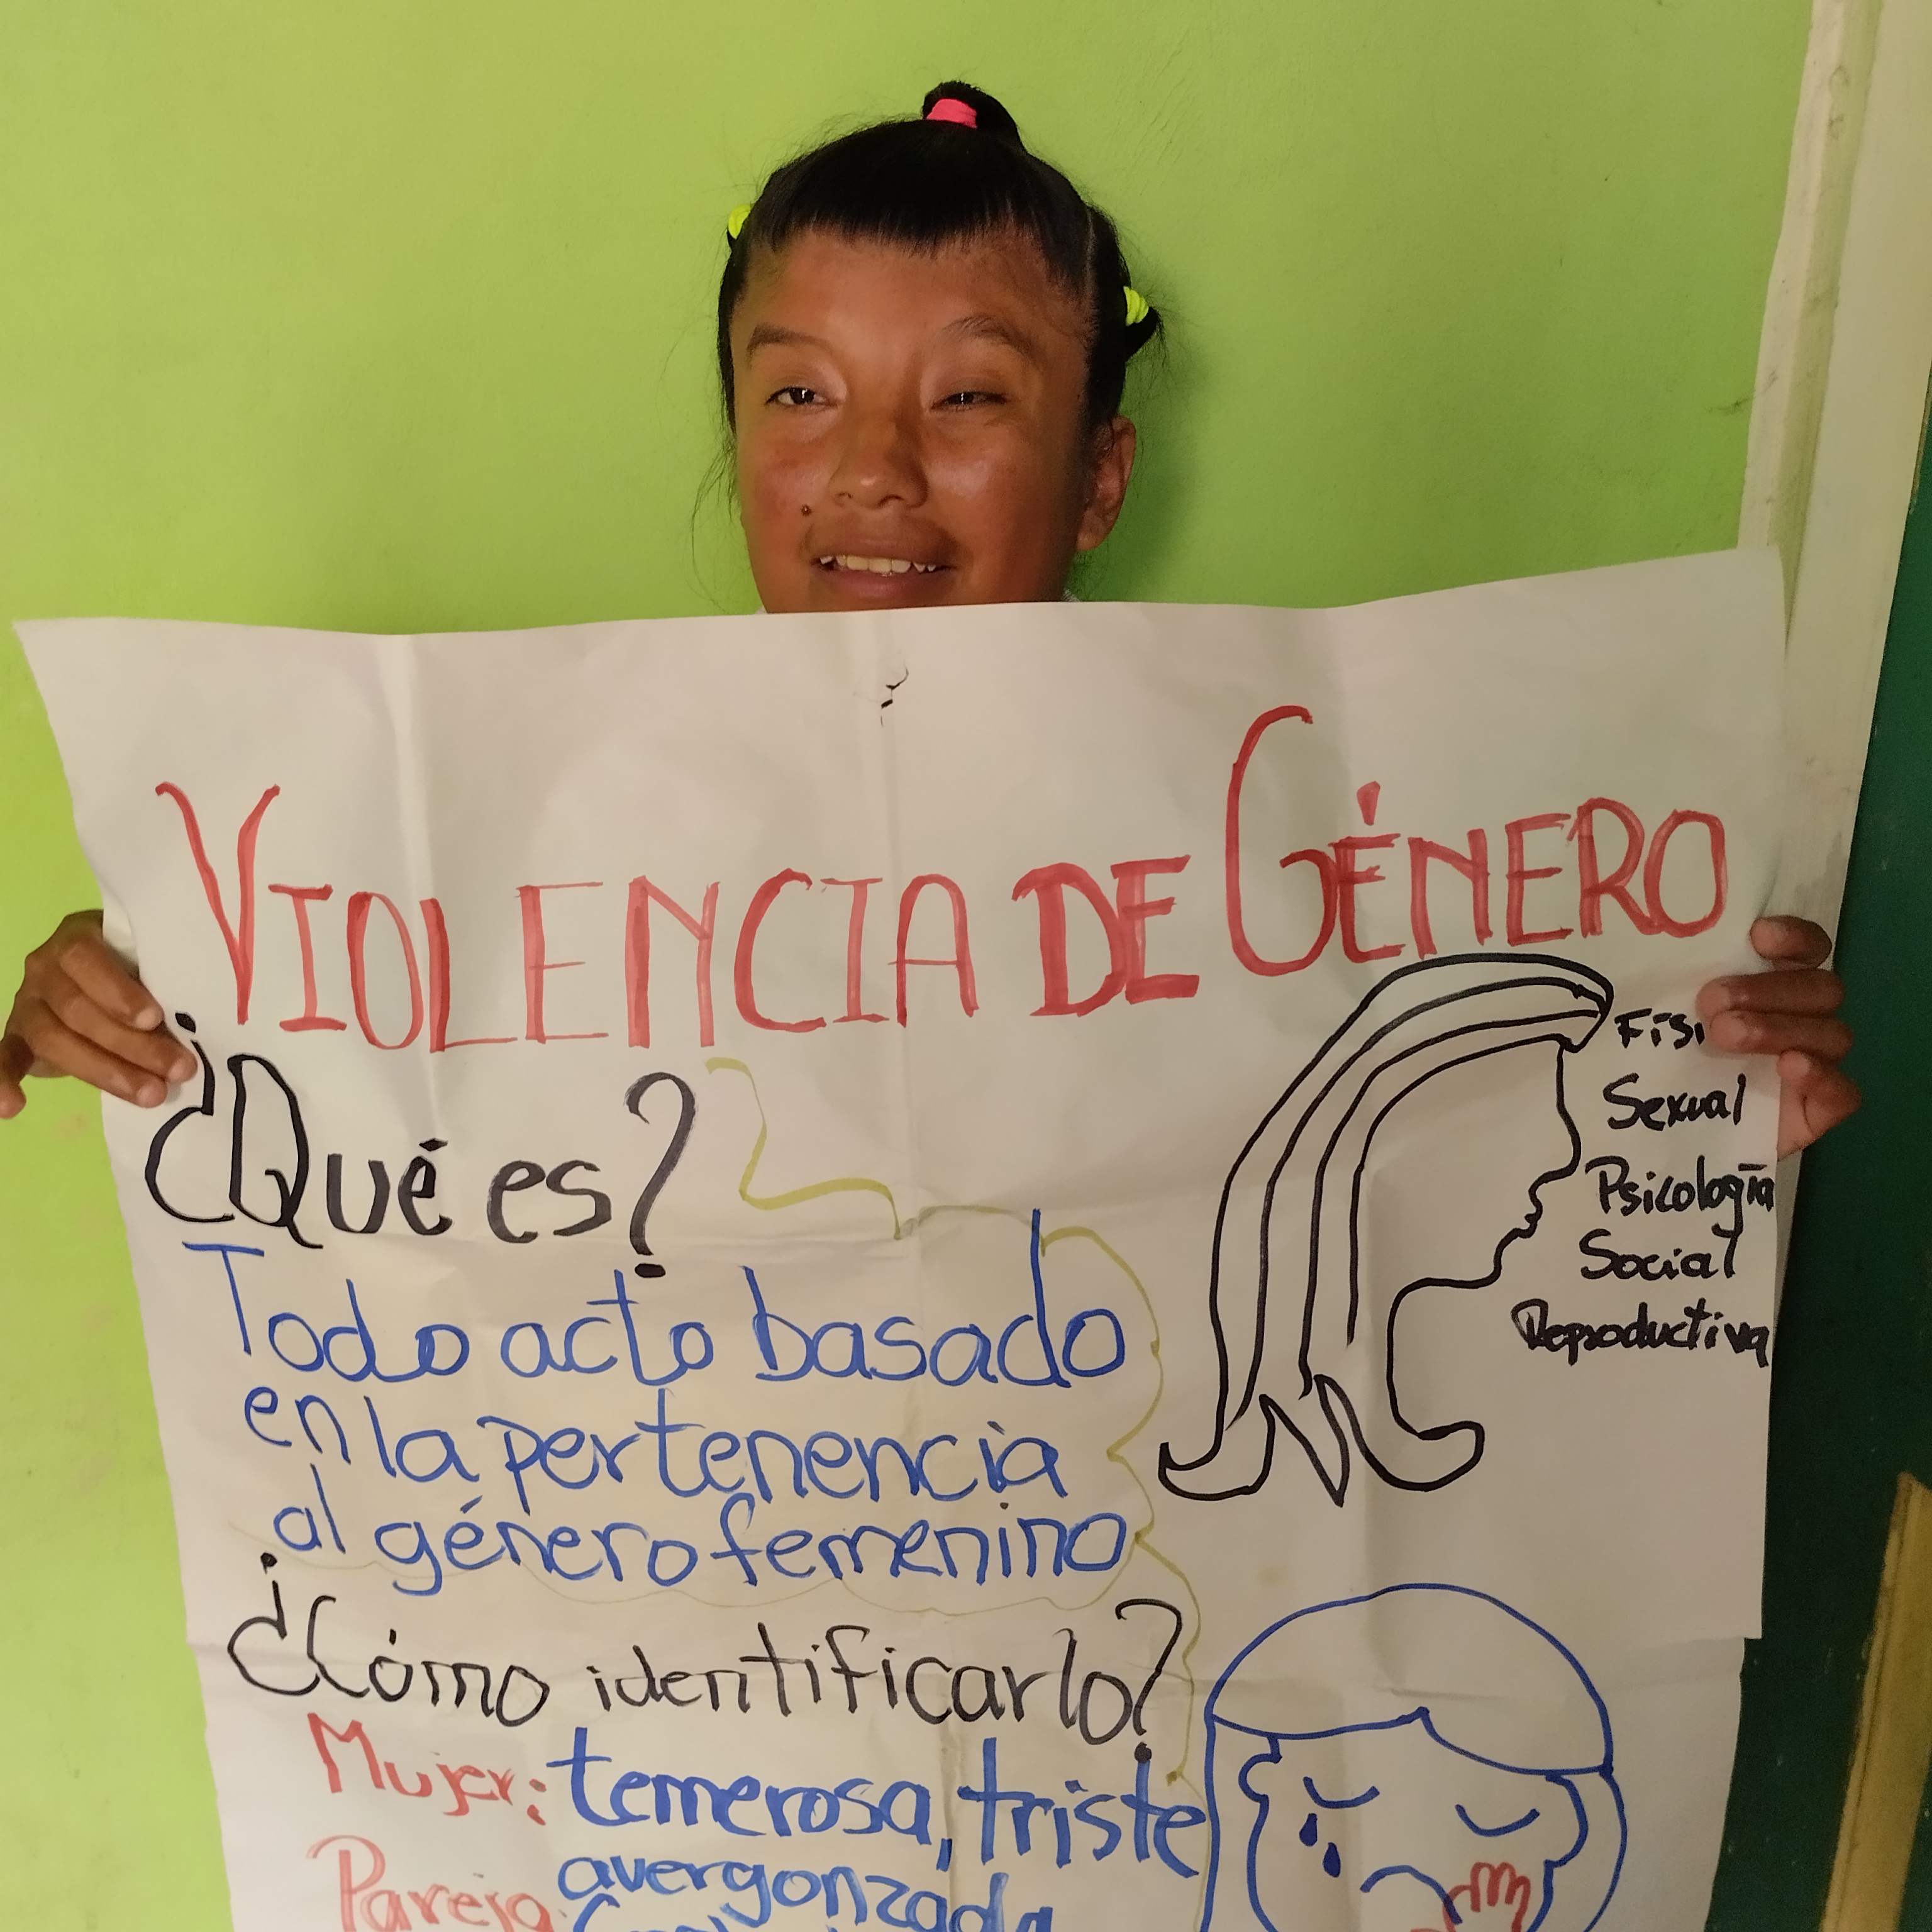 VIOLENCIA DE GÉNERO
¿Qué es?
Todo acto basado
en la pertenencia
al género femenino
Físi
Sexual
Psicología
Social
Reproductiva
¿Cómo identificarlo?
Mujer: temerosa, triste
avergonzada
Pareja: